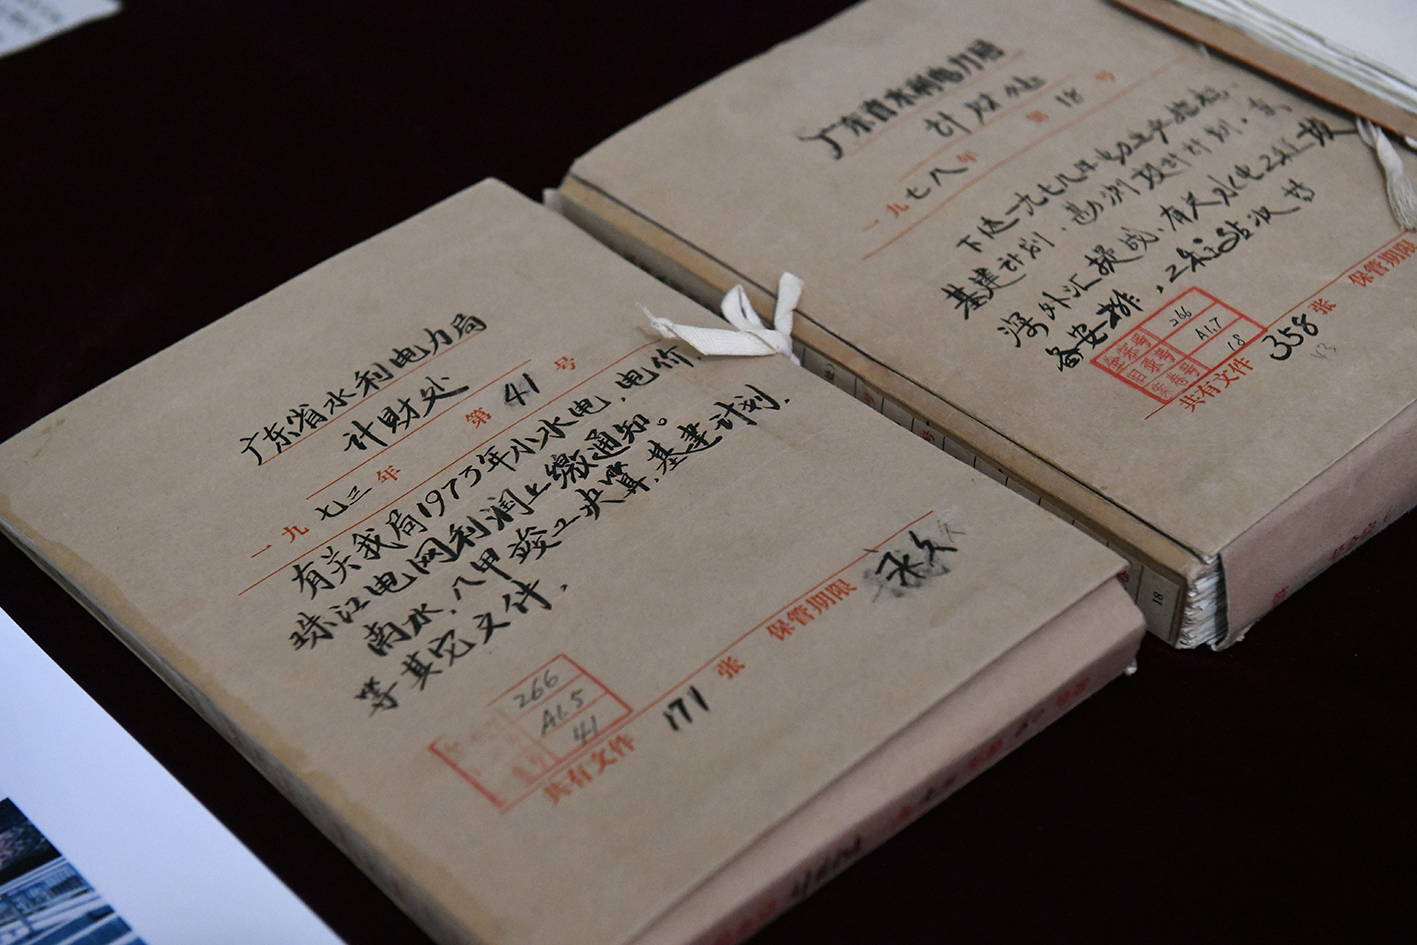 广东省水利电力局
计财处
一九七三年 第41号
有关我局1973年小水电,电价,
珠江电网利润上缴通知。
南水,八甲竣工决算,基建计划,
等其它文件.
保管期限 永久
共有文件 171 张
266
A1.5
41
广东省水利电力局
计财处
一九七八年 第18号
下达一九七八年电力工业
基建计划.勘测设计计划.
外汇
安排,
保管期限
共有文件 358 张
全宗号 266
目录号 A1.7
案卷号 18
18